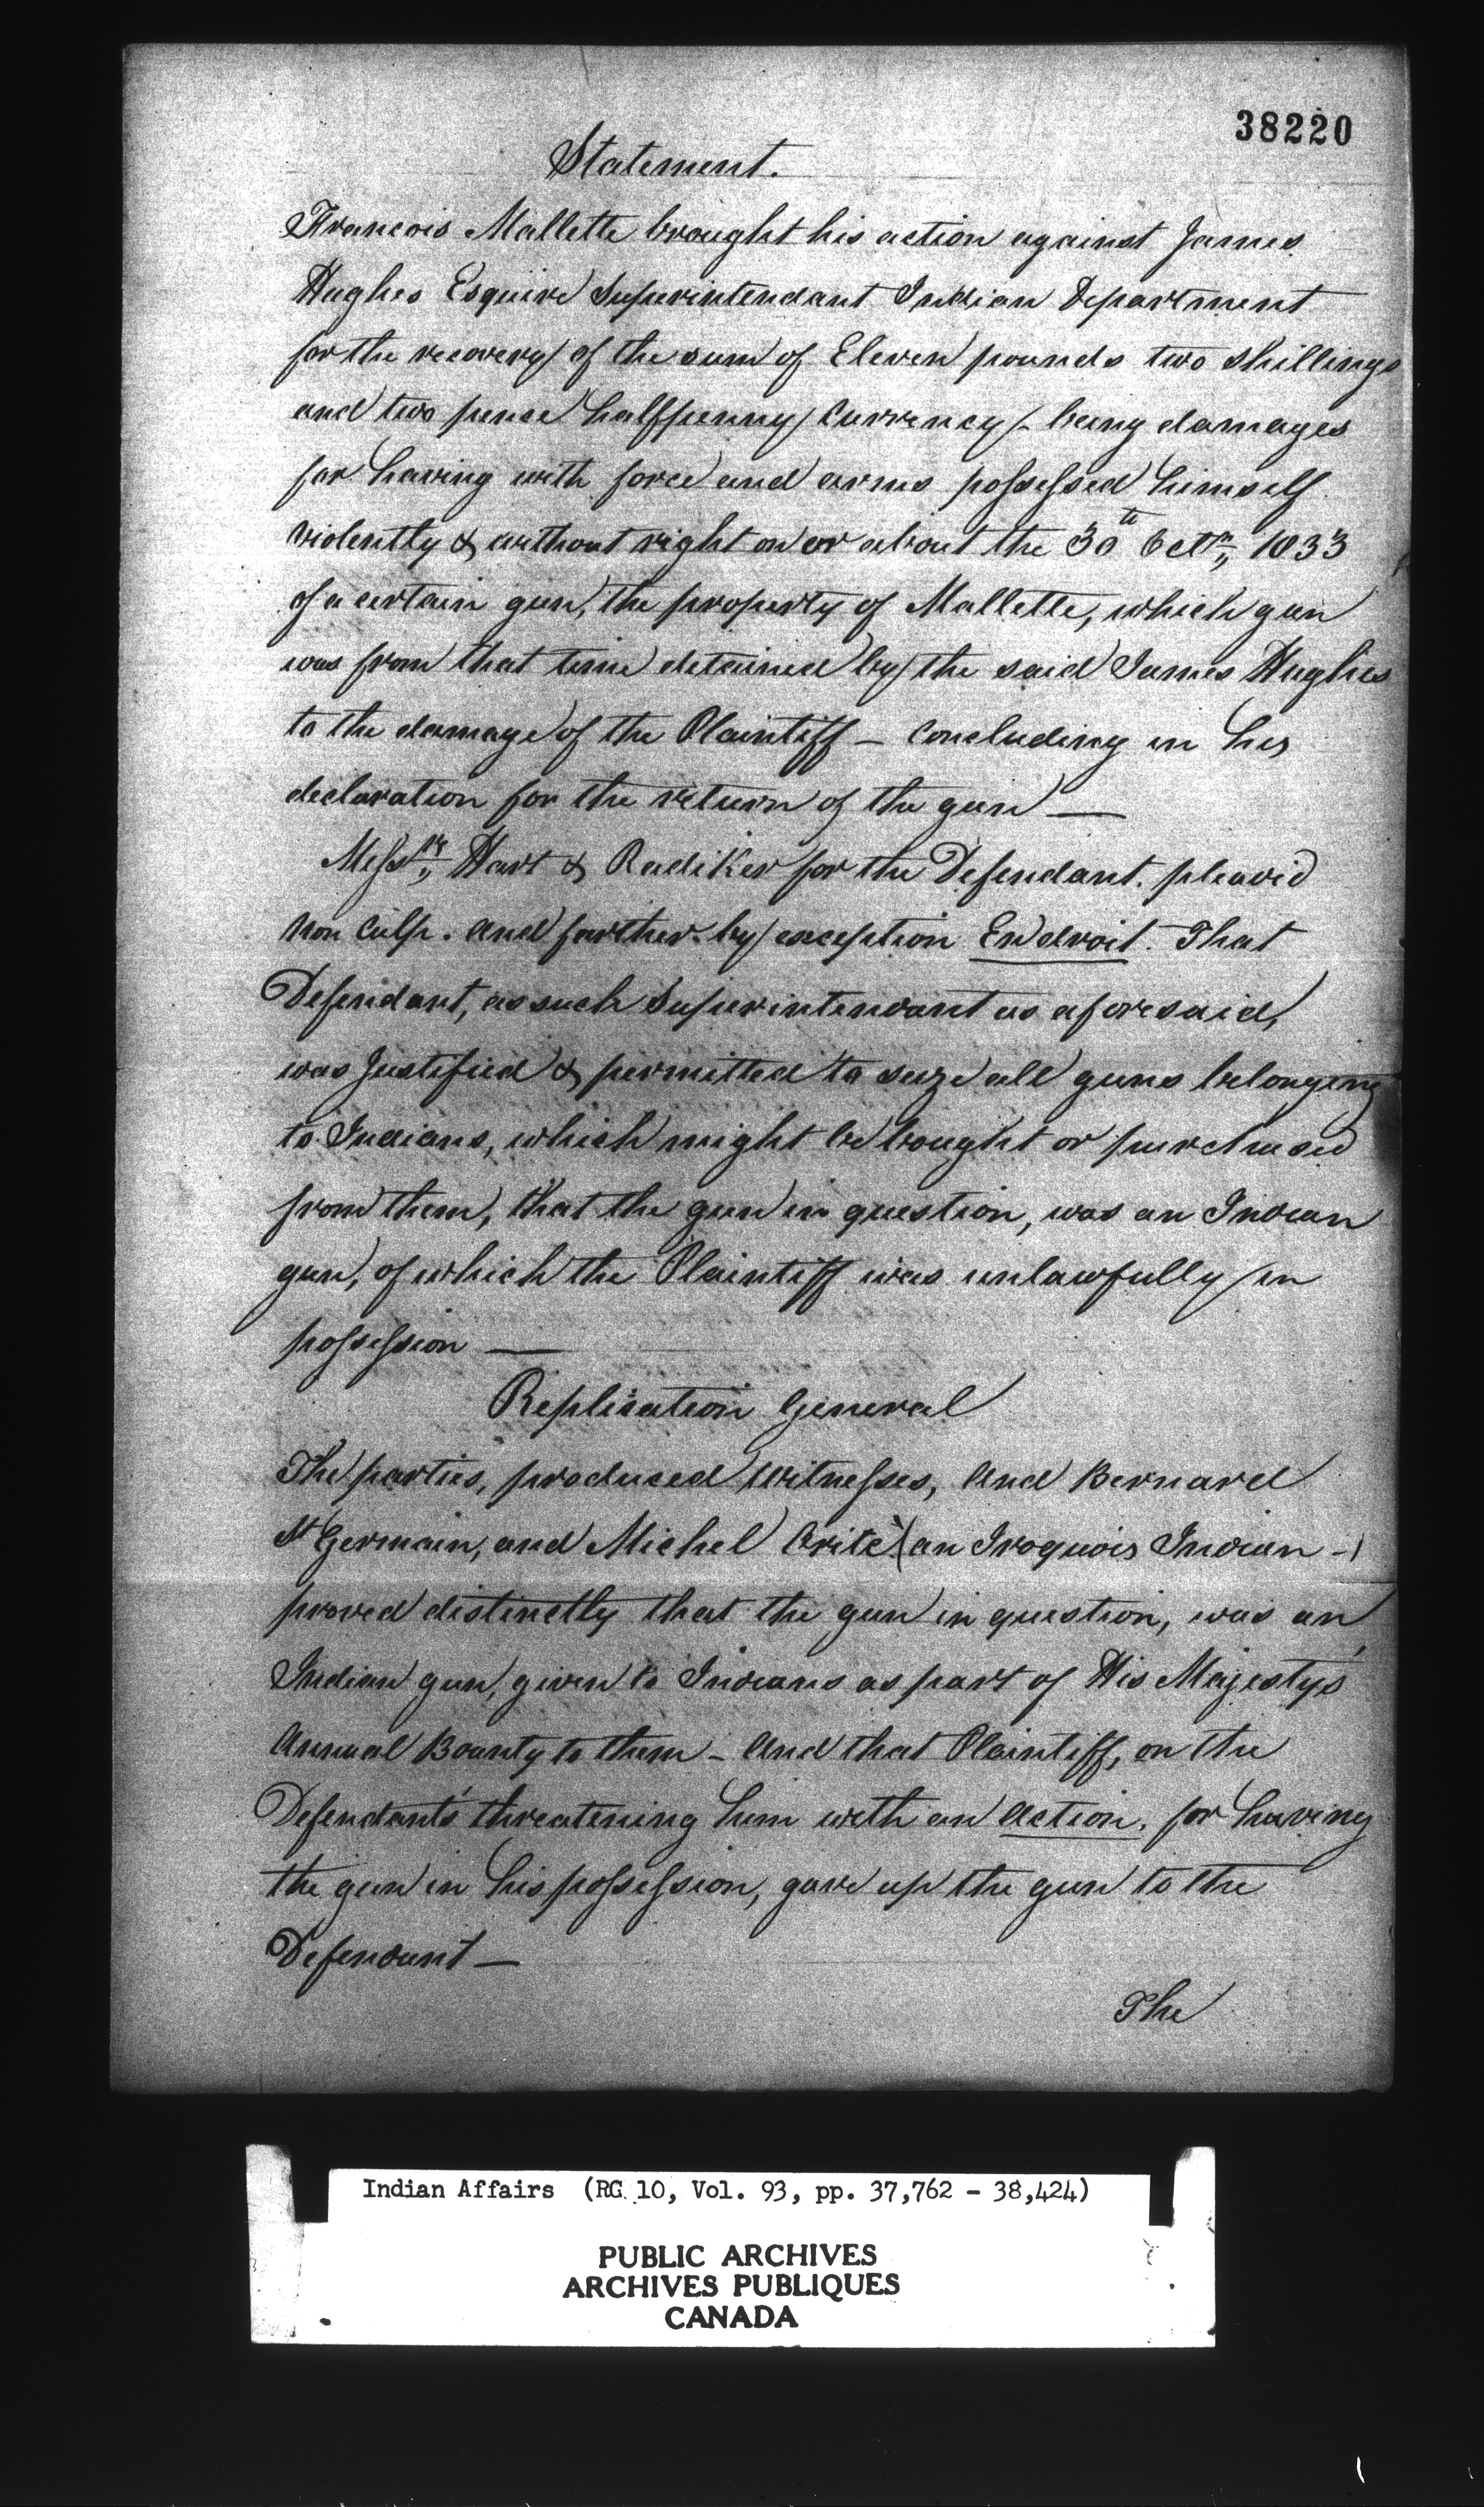 38220
Statement.
Francois Mallette brought his action against James
Hughes Esquire Superintendant Indian Department
for the recovery of the sum of Eleven pounds two shillings
and two pence halfpenny Currency - being damages
for having with force and arms possessed himself
violently & without right on or about the 30th Octr., 1833
of a certain gun, the property of Mallette, which gun
was from that time detained by the said James Hughes
to the damage of the Plaintiff - Concluding in his
declaration for the return of the gun —
Messrs., Hart & Radiker for the Defendant. plead
Non Culp. And further by exception En droit. That
Defendant, as such Superintendant as aforesaid,
was Justified & permitted to seize all guns belonging
to Indians, which might be bought or purchased
from them, that the gun in question, was an Indian
gun, of which the Plaintiff was unlawfully in
possession —
Replication General
The parties, produced Witnesses, And Bernard
St Germain, and Michel (an Iroquois Indian -)
proved distinctly that the gun in question, was an
Indian gun, given to Indians as part of His Majesty's
Annual Bounty to them - And that Plaintiff, on the
Defendant's threatening him with an action, for having
the gun in his possession, gave up the gun to the
Defendant —
The
Indian Affairs (RG 10, Vol. 93, pp. 37,762 - 38,424)
PUBLIC ARCHIVES
ARCHIVES PUBLIQUES
CANADA